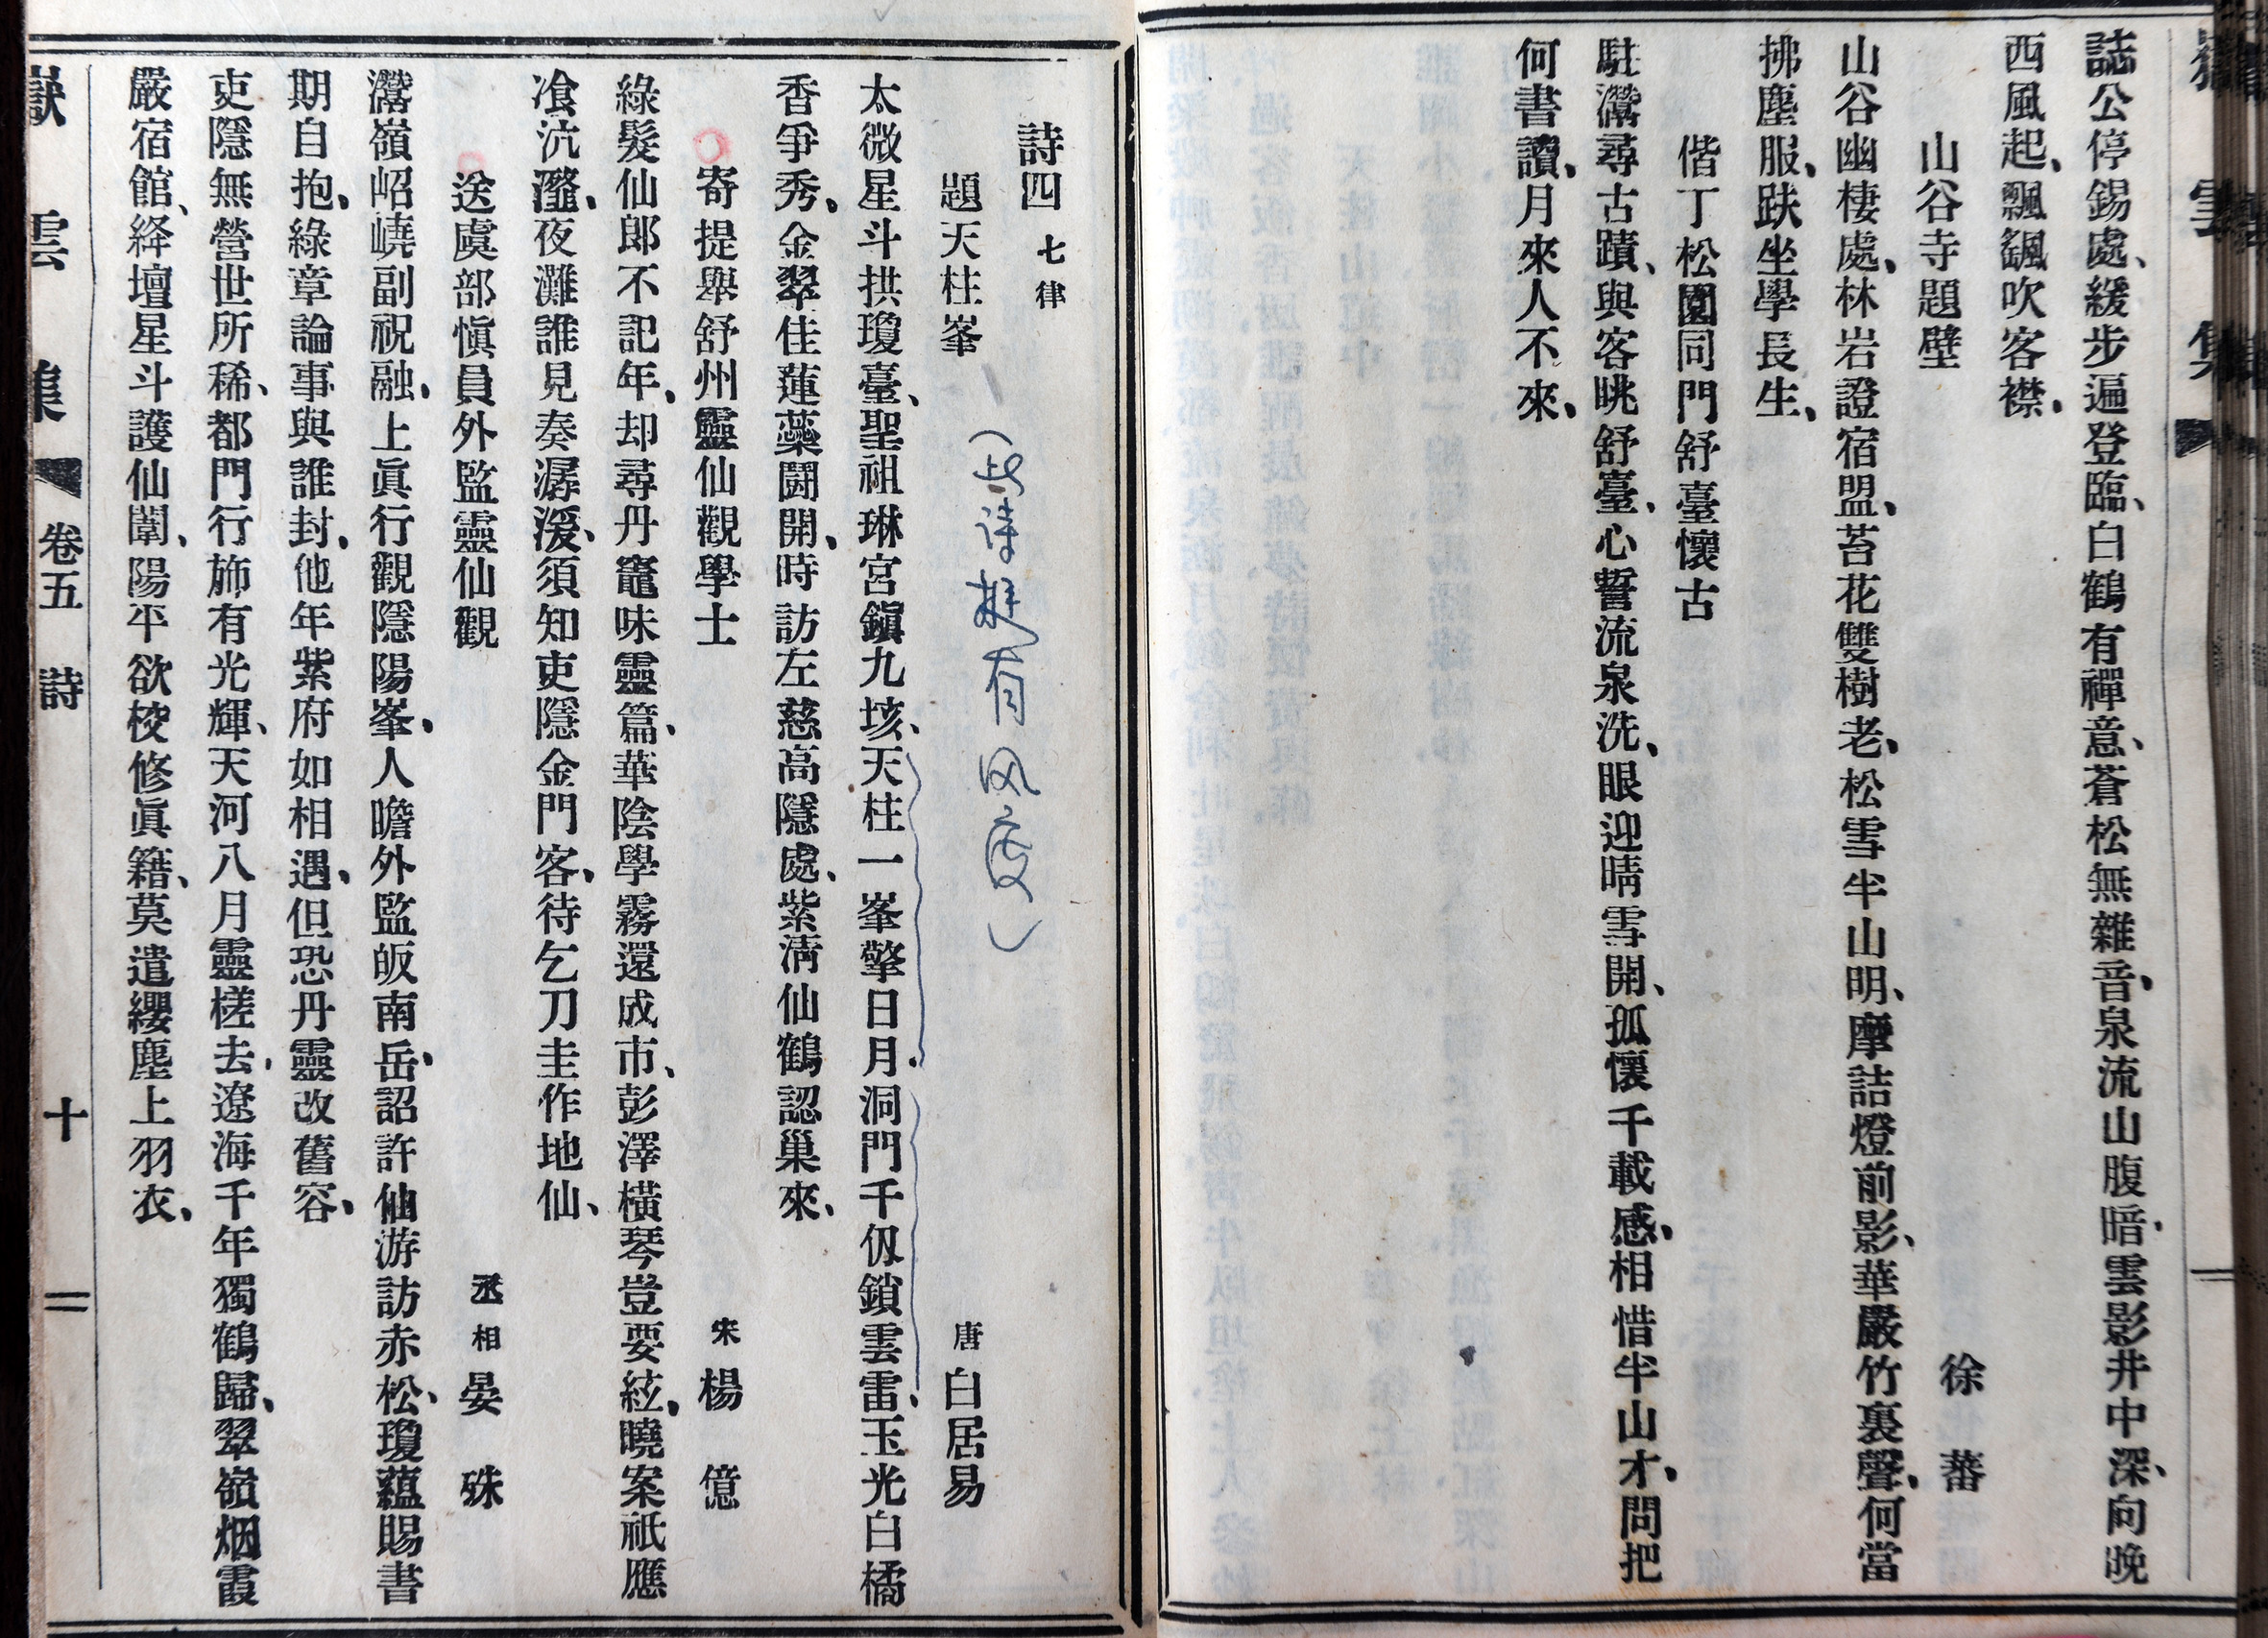 誌公停錫處、緩步遍登臨、白鶴有禪意、蒼松無雜音、泉流山腹暗、雲影井中深、向晚
西風起、飄颻吹客襟、
山谷寺題壁 徐蕃
山谷幽棲處、林岩證宿盟、苔花雙樹老、松雪半山明、摩詰燈前影、華嚴竹裏聲、何當
拂塵服、趺坐學長生、
偕丁松園同門舒臺懷古
駐灊尋古蹟、與客眺舒臺、心誓流泉洗、眼迎晴雪開、孤懷千載感、相惜半山才、問把
何書讀、月來人不來、
詩四 七律
題天柱峯 唐 白居易
(此诗超有风度)
太微星斗拱瓊臺、聖祖琳宮鎭九垓、天柱一峯擎日月、洞門千仞鎖雲雷、玉光白橘
香爭秀、金翠佳蓮蘂鬪開、時訪左慈高隱處、紫淸仙鶴認巢來、
寄提舉舒州靈仙觀學士 宋 楊億
綠髮仙郎不記年、却尋丹竈味靈篇、華陰學霧還成市、彭澤橫琴豈要絃、曉案祇應
飡沆瀣、夜灘誰見奏潺湲、須知吏隱金門客、待乞刀圭作地仙、
送虞部愼員外監靈仙觀 丞相 晏殊
灊嶺岹嶢副祝融、上眞行觀隱陽峯、人瞻外監皈南岳、詔許仙游訪赤松、瓊蘊賜書
期自抱、綠章論事與誰封、他年紫府如相遇、但恐丹靈改舊容、
吏隱無營世所稀、都門行斾有光輝、天河八月靈槎去、遼海千年獨鶴歸、翠嶺烟霞
嚴宿館、絳壇星斗護仙闈、陽平欲校修眞籍、莫遣纓塵上羽衣、
嶽雲集 卷五 詩 十